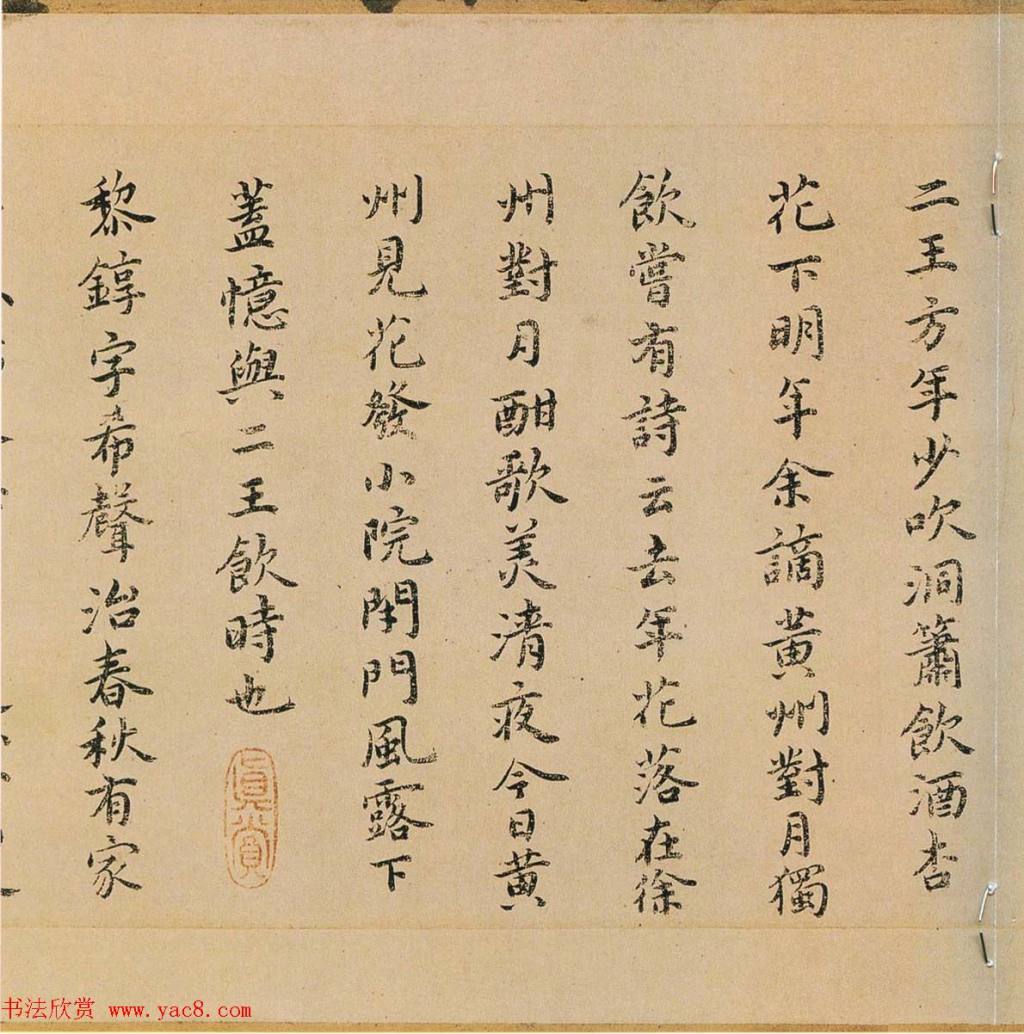 二王方年少吹洞簫飲酒杏
花下明年余謫黃州對月獨
飲嘗有詩云去年花落在徐
州對月酣歌美清夜今日黃
州見花發小院閉門風露下
蓋憶與二王飲時也
真賞
黎錞字希聲治春秋有家
书法欣赏 www.yac8.com